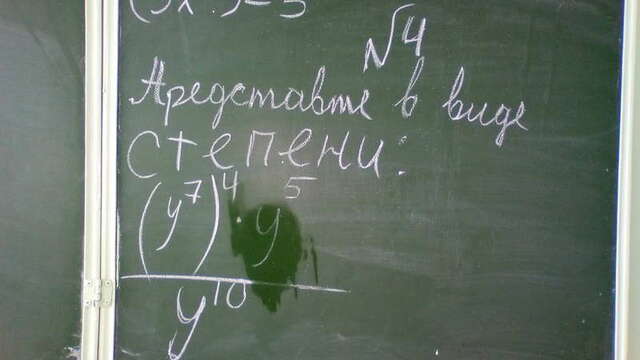 №4
Представте в виде
степени:
(y⁷)⁴ · y⁵
y¹⁰